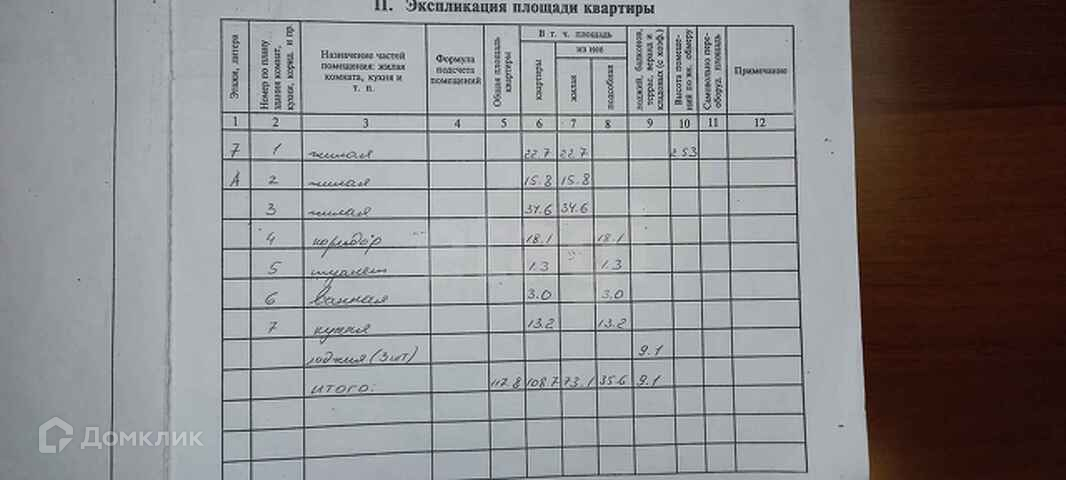 II. Экспликация площади квартиры
Этажи, литера
Номер по плану здания комнат, кухни, корид. и пр.
Назначение частей помещения: жилая комната, кухня и т. п.
Формула подсчета помещений
Общая площадь квартиры
В т. ч. площадь
из нее
квартиры
жилая
подсобная
лоджий, балконов, террас, веранд и кладовых (с коэф.)
Высота помещений по вн. обмеру
Самовольно переоборуд. площадь
Примечание
1 2 3 4 5 6 7 8 9 10 11 12
7 1 жилая 22.7 22.7 2.53
А 2 жилая 15.8 15.8
3 жилая 34.6 34.6
4 коридор 18.1 18.1
5 туалет 1.3 1.3
6 ванная 3.0 3.0
7 кухня 13.2 13.2
лоджия (3шт) 9.1
итого: 117.8 108.7 73.1 35.6 9.1
Домклик